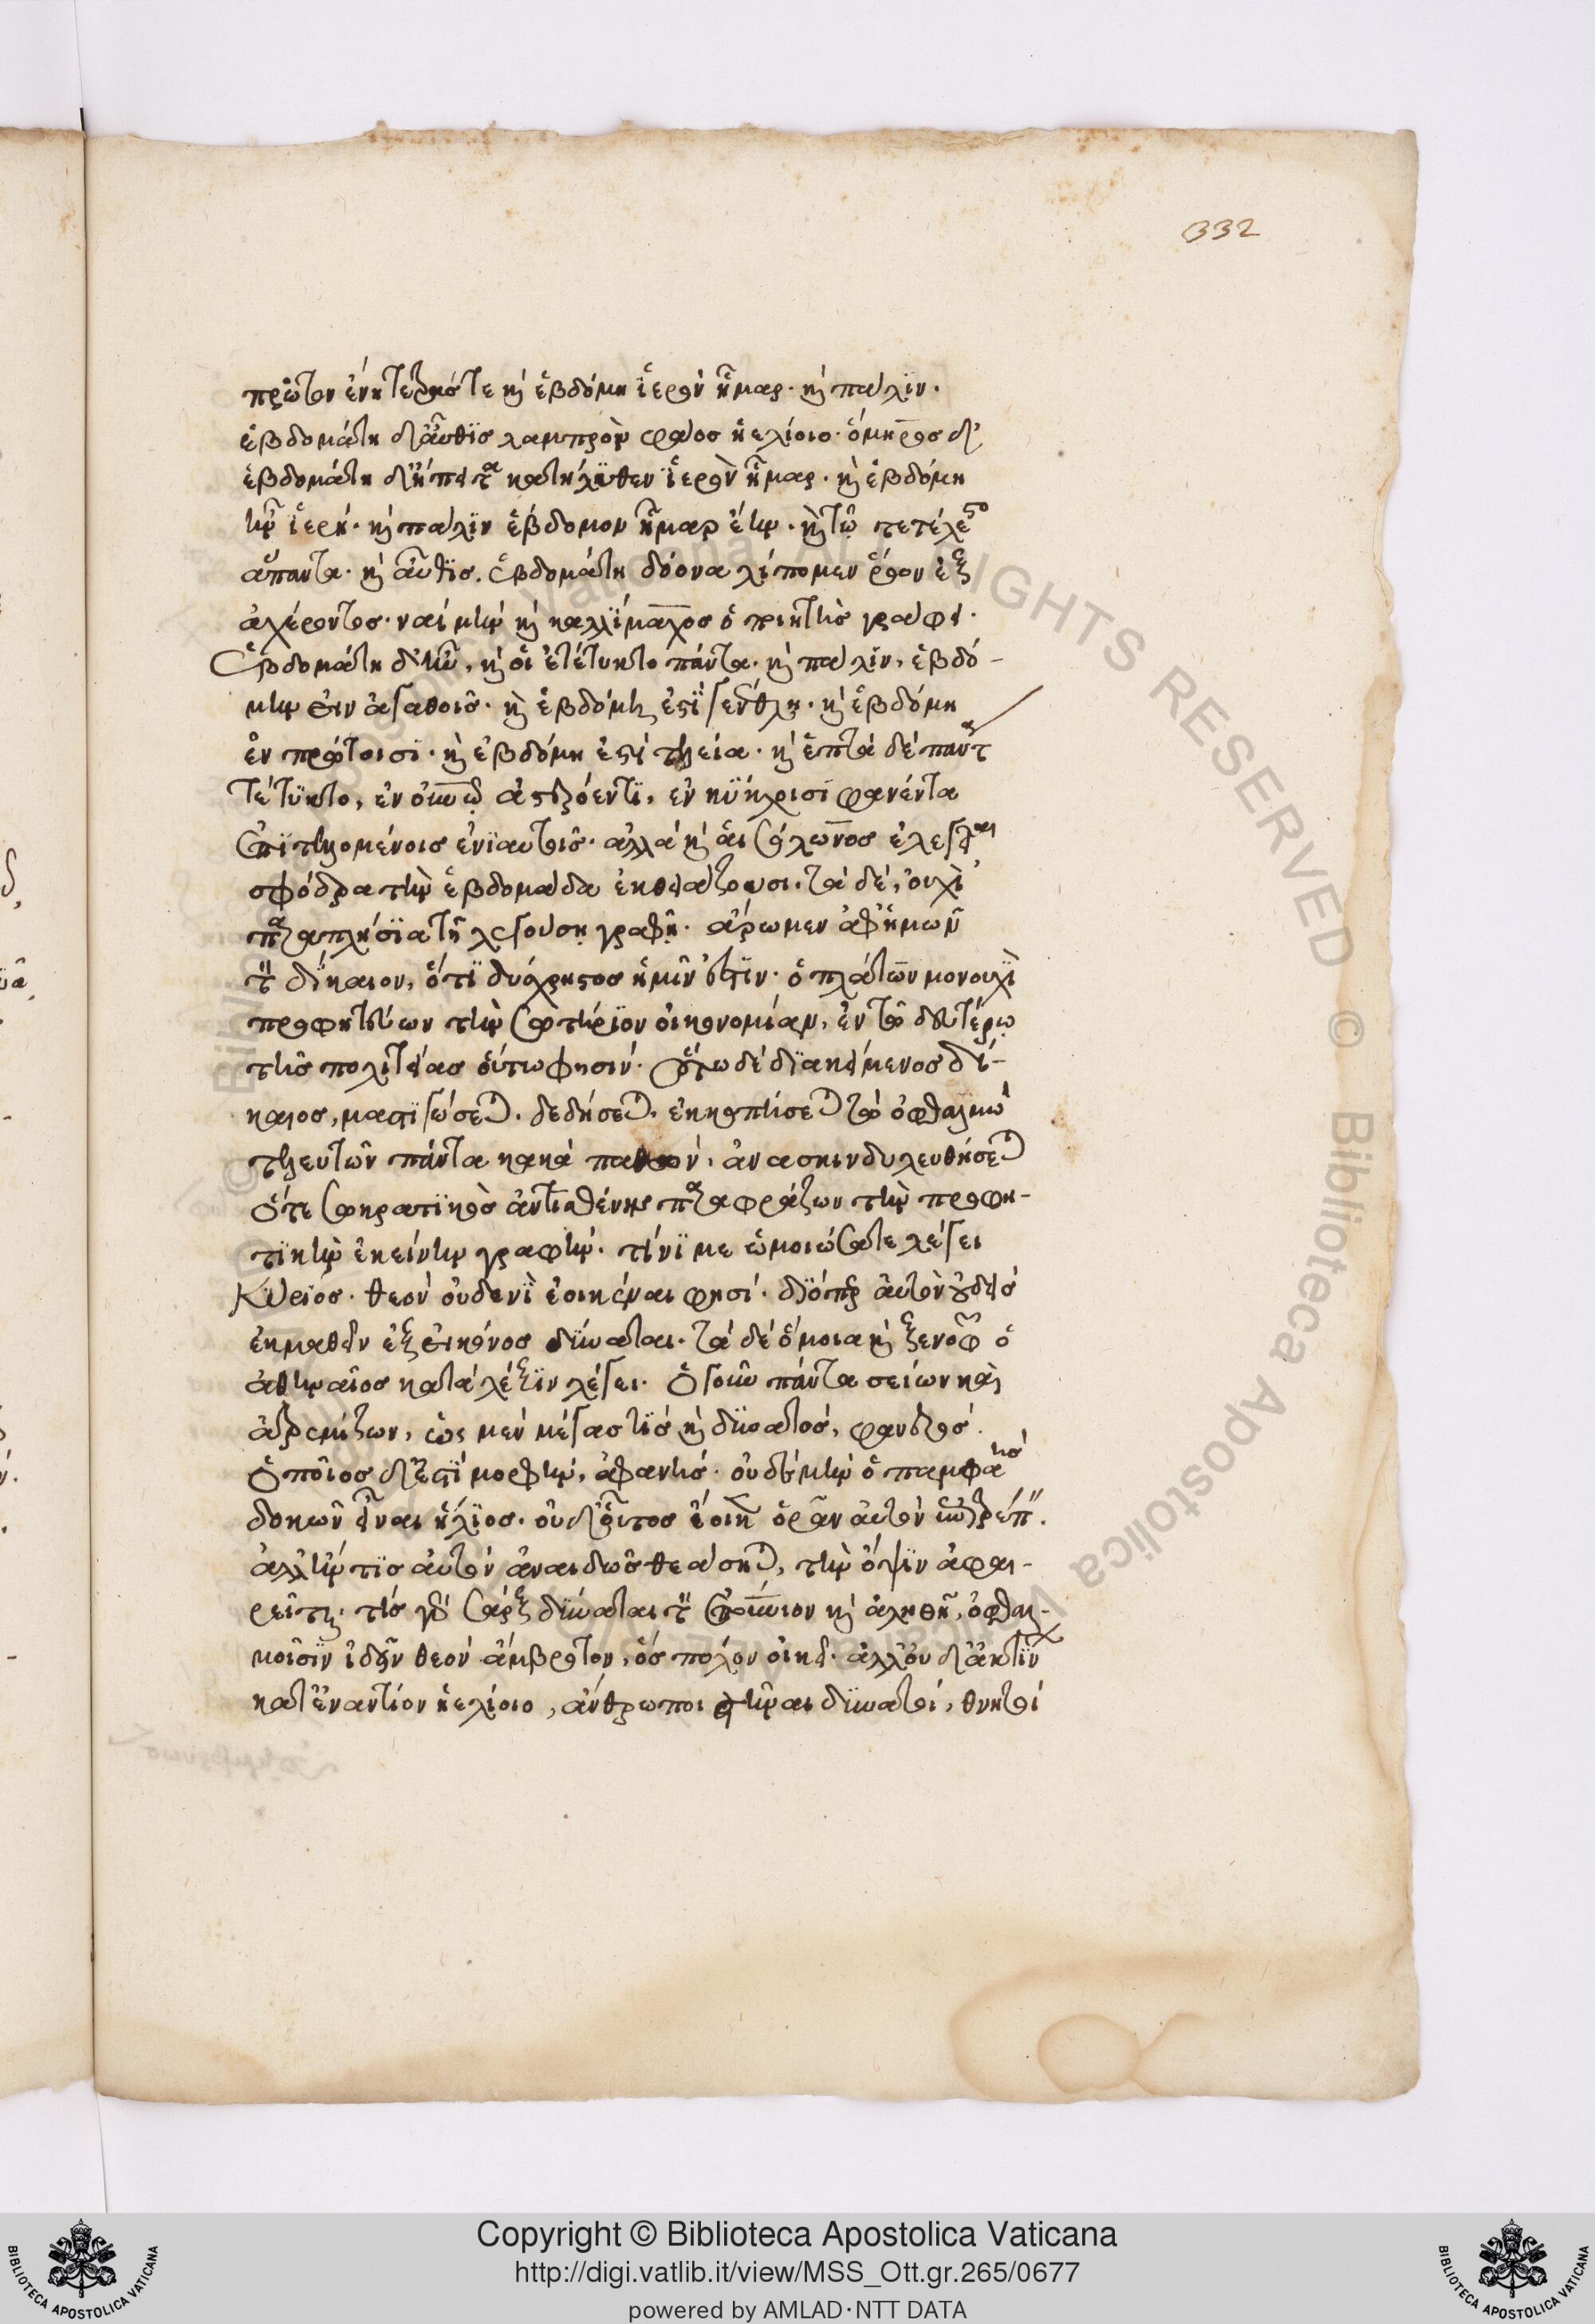 332
πρῶτον ἕνη τετράς τε καὶ ἑβδόμη ἱερὸν ἦμαρ· καὶ πάλϊν·
ἑβδομάτη δ' αὖθϊς λαμπρὸν φάος ἠελίοιο· ὅμηρος δ'
ἑβδομάτη δ' ἤπειτα κατήλϋθεν ἱερὸν ἦμαρ· καὶ ἑβδόμη
ἦν ἱερή· καὶ πάλϊν ἕβδομον ἦμαρ ἔην· καὶ τῶ τετέλεστο
ἅπαντα· καὶ αὖθϊς. ἑβδομάτη δ' ἠοῖ λίπομεν ῥόον ἐξ
ἀχέροντος· ναὶ μὴν καὶ καλλίμαχος ὁ ποιητὴς γράφει·
ἑβδομάτη δ' ἠοῖ, καὶ οἱ ἐτέτυκτο πάντα· καὶ πάλϊν, ἑβδό-
μη εἰν ἀγαθοῖς· καὶ ἑβδόμη ἐστὶ γενέθλη· καὶ ἑβδόμη
ἐν πρώτοισϊ· καὶ ἑβδόμη ἐστὶ τελεία· καὶ ἑπτὰ δὲ πάντα
τέτϋκτο, ἐν οὐρανῷ ἀστερόεντϊ, ἐν κϋκλοισϊ φανέντα
ἐπϊτελλομένοις ἐνϊαυτοῖς· ἀλλὰ καὶ αἱ σόλωνος ἐλεγεῖαι
σφόδρα τὴν ἑβδομάδα ἐκθειάζουσι. τὰ δὲ, οὐχὶ
παραπλήσϊα τῇ λεγούσῃ γραφῇ· ἄρωμεν ἀφ' ἡμῶν
τὸν δίκαιον, ὅτϊ δύσχρηστος ἡμῖν ἐστϊν· ὁ πλάτων μονουχὶ
προφητεύων τὴν σωτήρϊον οἰκονομίαν, ἐν τῶ δευτέρῳ
τῆς πολιτείας οὕτω φησίν· οὕτω δὲ δϊακείμενος δί-
καιος, μαστϊγώσεται. δεδήσεται. ἐκκοπήσεται τὼ ὀφθαλμώ
τελευτῶν πάντα κακὰ παθὼν, ἀνασκινδυλευθήσεται
ὅτε σωκρατϊκὸς ἀντισθένης παραφράζων τὴν προφη-
τϊκὴν ἐκείνην γραφήν· τίνϊ με ὡμοιώσατε λέγει
κύριος· θεὸν οὐδενὶ ἐοικέναι φησί· δϊόπερ αὐτὸν οὐδεὶς
ἐκμαθεῖν ἐξ εἰκόνος δύναται· τὰ δὲ ὅμοια καὶ ξενοφῶν ὁ
ἀθηναῖος κατὰ λέξϊν λέγει· ὁ γοῦν πάντα σείων καὶ
ἀτρεμίζων, ὡς μὲν μέγας τϊς καὶ δϋνατὸς, φανερός·
ὁποῖος δ' ἐστὶ μορφὴν, ἀφανής· οὐδὲ μὴν ὁ παμφαὴς
δοκῶν εἶναι ἥλϊος· οὐδ' οὗτος ἔοικεν ὁρᾶν αὐτὸν ἐπιτρέπειν.
ἀλλ' ἤν τϊς αὐτὸν ἀναιδῶς θεάσηται, τὴν ὄψϊν ἀφαι-
ρεῖται· τίς γὰρ σὰρξ δύναται τὸν ἐπουράνιον καὶ ἀληθῆ, ὀφθαλ-
μοῖσϊν ἰδεῖν θεὸν ἄμβροτον, ὃς πόλον οἰκεῖ· ἀλλ' οὐδ' ἀκτίνων
κατ' ἐναντίον ἠελίοιο, ἄνθρωποι στῆναι δϋνατοί, θνητοὶ
Copyright © Biblioteca Apostolica Vaticana
http://digi.vatlib.it/view/MSS_Ott.gr.265/0677
powered by AMLAD·NTT DATA